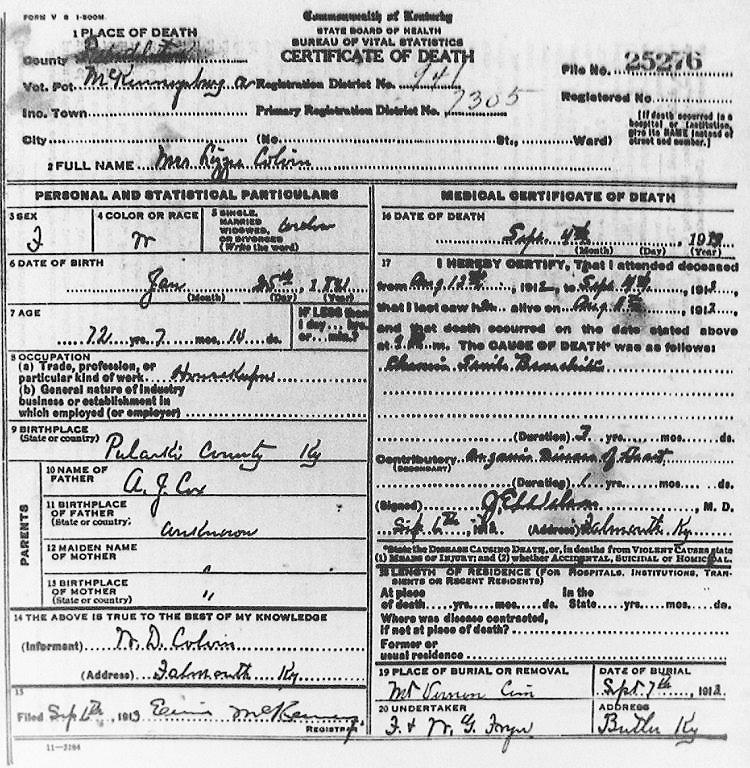 FORM V S 1-500M.
Commonwealth of Kentucky
STATE BOARD OF HEALTH
BUREAU OF VITAL STATISTICS
CERTIFICATE OF DEATH
1 PLACE OF DEATH
County
Vot. Pct McKenneysburg Registration District No. 941
File No. 25276
Inc. Town Primary Registration District No. 7305
Registered No
City (No. St., Ward)
[If death occurred in a
hospital or institution,
give its NAME instead of
street and number.]
2 FULL NAME Mrs Lizzie Colvin
PERSONAL AND STATISTICAL PARTICULARS
3 SEX F
4 COLOR OR RACE W
5 SINGLE,
MARRIED
WIDOWED,
OR DIVORCED
(Write the word)
6 DATE OF BIRTH
Jan 25th, 1841
(Month) (Day) (Year)
7 AGE
72 yrs. 7 mos. 10 ds.
IF LESS than
1 day... hrs.
or... min.?
8 OCCUPATION
(a) Trade, profession, or
particular kind of work
(b) General nature of industry
business or establishment in
which employed (or employer)
9 BIRTHPLACE
(State or country) Pulaski County Ky
PARENTS
10 NAME OF
FATHER A. J. Cox
11 BIRTHPLACE
OF FATHER
(State or country) unknown
12 MAIDEN NAME
OF MOTHER
13 BIRTHPLACE
OF MOTHER
(State or country) "
14 THE ABOVE IS TRUE TO THE BEST OF MY KNOWLEDGE
(Informant) W. D. Colvin
(Address) Falmouth Ky
15
Filed Sep 6th, 1913 McKenney
REGISTRAR
11-3184
MEDICAL CERTIFICATE OF DEATH
16 DATE OF DEATH
Sept. 4th, 1913
(Month) (Day) (Year)
17 I HEREBY CERTIFY, That I attended deceased
from Aug. 12th, 191 , to Sept 4th, 191
that I last saw her alive on Aug , 191 ,
and that death occurred on the date stated above
at m. The CAUSE OF DEATH* was as follows:
Chronic Senile Bronchitis
(Duration) yrs. mos. ds.
Contributory Organic Disease of Heart
(SECONDARY)
(Duration) yrs. mos. ds.
(Signed) M. D.
Sep 6th, 191 (Address) Falmouth Ky
*State the DISEASE CAUSING DEATH, or, in deaths from VIOLENT CAUSES state
(1) MEANS OF INJURY; and (2) whether ACCIDENTAL, SUICIDAL or HOMICIDAL.
18 LENGTH OF RESIDENCE (FOR HOSPITALS, INSTITUTIONS, TRAN-
SIENTS OR RECENT RESIDENTS)
At place In the
of death yrs. mos. ds. State yrs. mos. ds.
Where was disease contracted,
if not at place of death?
Former or
usual residence
19 PLACE OF BURIAL OR REMOVAL
Mt Vernon Cem
DATE OF BURIAL
Sept 7th, 1913
20 UNDERTAKER
F. & W. G. Fryer
ADDRESS
Butler Ky